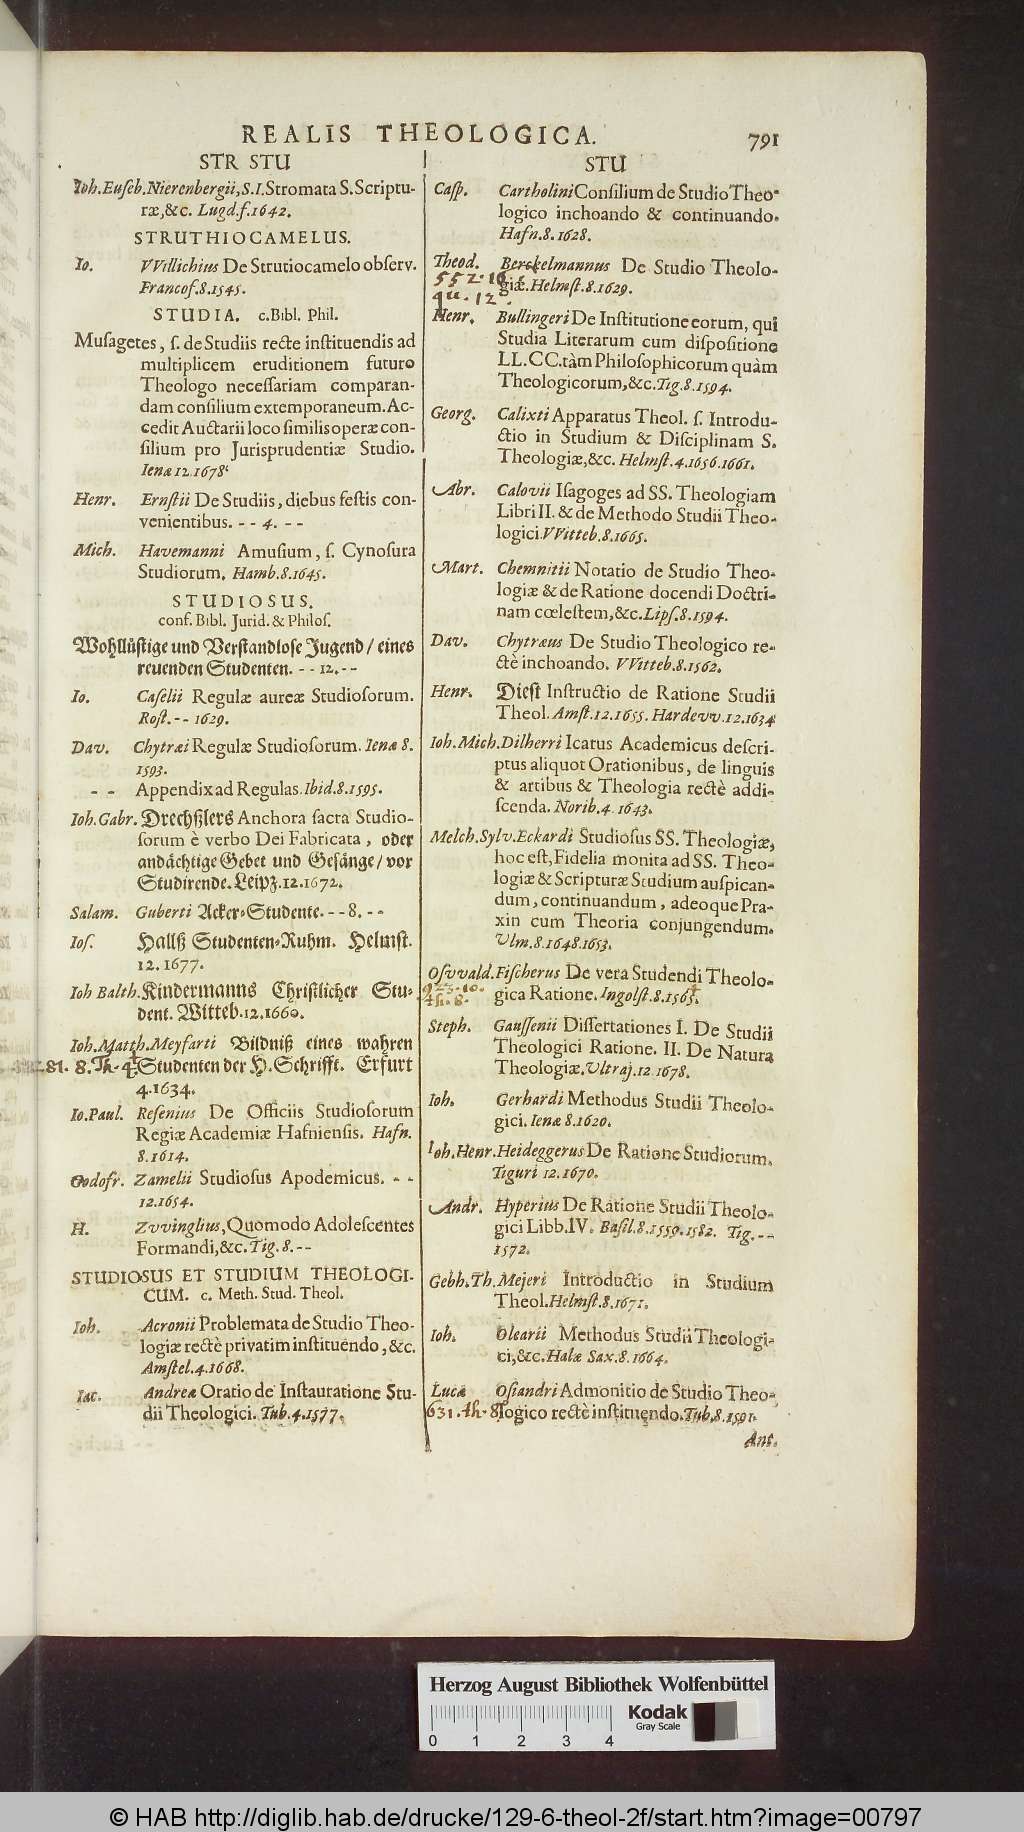 REALIS THEOLOGICA. 791
STR STU
Ioh. Euseb. Nierenbergii, S.I. Stromata S. Scriptu-
ræ, &c. Lugd. f. 1642.
STRUTHIOCAMELUS.
Io. VVillichius De Strutiocamelo observ.
Francof. 8. 1545.
STUDIA. c. Bibl. Phil.
Musagetes, s. de Studiis recte instituendis ad
multiplicem eruditionem futuro
Theologo necessariam comparan-
dam consilium extemporaneum. Ac-
cedit Auctarii loco similis operæ con-
silium pro Jurisprudentiæ Studio.
Ienæ 12. 1678.
Henr. Ernstii De Studiis, diebus festis con-
venientibus. - - 4. - -
Mich. Havemanni Amusium, s. Cynosura
Studiorum. Hamb. 8. 1645.
STUDIOSUS.
conf. Bibl. Jurid. & Philos.
Wohllüstige und Verstandlose Jugend / eines
reuenden Studenten. - - 12. - -
Io. Caselii Regulæ aureæ Studiosorum.
Rost. - - 1629.
Dav. Chytræi Regulæ Studiosorum. Ienæ 8.
1593.
- - Appendix ad Regulas. Ibid. 8. 1595.
Ioh. Gabr. Drechßlers Anchora sacra Studio-
sorum è verbo Dei Fabricata, oder
andächtige Gebet und Gesänge / vor
Studirende. Leipz. 12. 1672.
Salam. Guberti Acker-Studente. - - 8. - -
Ios. Hallß Studenten-Ruhm. Helmst.
12. 1677.
Ioh Balth. Kindermanns Christlicher Stu-
dent. Witteb. 12. 1660.
Ioh. Matth. Meyfarti Bildniß eines wahren
81. 8. Th. 4. Studenten der H. Schrifft. Erfurt
4. 1634.
Io. Paul. Resenius De Officiis Studiosorum
Regiæ Academiæ Hafniensis. Hafn.
8. 1614.
Godofr. Zamelii Studiosus Apodemicus. - -
12. 1654.
H. Zvvinglius, Quomodo Adolescentes
Formandi, &c. Tig. 8. - -
STUDIOSUS ET STUDIUM THEOLOGI-
CUM. c. Meth. Stud. Theol.
Ioh. Acronii Problemata de Studio Theo-
logiæ rectè privatim instituendo, &c.
Amstel. 4. 1668.
Iac. Andreæ Oratio de Instauratione Stu-
dii Theologici. Tub. 4. 1577.
STU
Casp. Cartholini Consilium de Studio Theo-
logico inchoando & continuando.
Hafn. 8. 1628.
Theod. Berckelmannus De Studio Theolo-
552. 10 giæ. Helmst. 8. 1629.
qu. 12.
Henr. Bullingeri De Institutione eorum, qui
Studia Literarum cum dispositione
LL. CC. tàm Philosophicorum quàm
Theologicorum, &c. Tig. 8. 1594.
Georg. Calixti Apparatus Theol. s. Introdu-
ctio in Studium & Disciplinam S.
Theologiæ, &c. Helmst. 4. 1656. 1661.
Abr. Calovii Isagoges ad SS. Theologiam
Libri II. & de Methodo Studii Theo-
logici. VVitteb. 8. 1665.
Mart. Chemnitii Notatio de Studio Theo-
logiæ & de Ratione docendi Doctri-
nam cœlestem, &c. Lips. 8. 1594.
Dav. Chytræus De Studio Theologico re-
ctè inchoando. VVitteb. 8. 1562.
Henr. Diest Instructio de Ratione Studii
Theol. Amst. 12. 1655. Hardevv. 12. 1634
Ioh. Mich. Dilherri Icatus Academicus descri-
ptus aliquot Orationibus, de linguis
& artibus & Theologia rectè addi-
scenda. Norib. 4. 1643.
Melch. Sylv. Eckardi Studiosus SS. Theologiæ,
hoc est, Fidelia monita ad SS. Theo-
logiæ & Scripturæ Studium auspican-
dum, continuandum, adeoque Pra-
xin cum Theoria conjungendum.
Ulm. 8. 1648. 1653.
Osvvald. Fischerus De vera Studendi Theolo-
923. 10. gica Ratione. Ingolst. 8. 1563.
th. 8.
Steph. Gaussenii Dissertationes I. De Studii
Theologici Ratione. II. De Natura
Theologiæ. Ultraj. 12. 1678.
Ioh. Gerhardi Methodus Studii Theolo-
gici. Ienæ 8. 1620.
Ioh. Henr. Heideggerus De Ratione Studiorum.
Tiguri 12. 1670.
Andr. Hyperius De Ratione Studii Theolo-
gici Libb. IV. Basil. 8. 1559. 1582. Tig. - -
1572.
Gebh. Th. Mejeri Introductio in Studium
Theol. Helmst. 8. 1671.
Ioh. Olearii Methodus Studii Theologi-
ci, &c. Halæ Sax. 8. 1664.
Lucæ Osiandri Admonitio de Studio Theo-
631. th. 8. logico rectè instituendo. Tub. 8. 1591.
Ant.
Herzog August Bibliothek Wolfenbüttel
0 1 2 3 4
Kodak
Gray Scale
© HAB http://diglib.hab.de/drucke/129-6-theol-2f/start.htm?image=00797